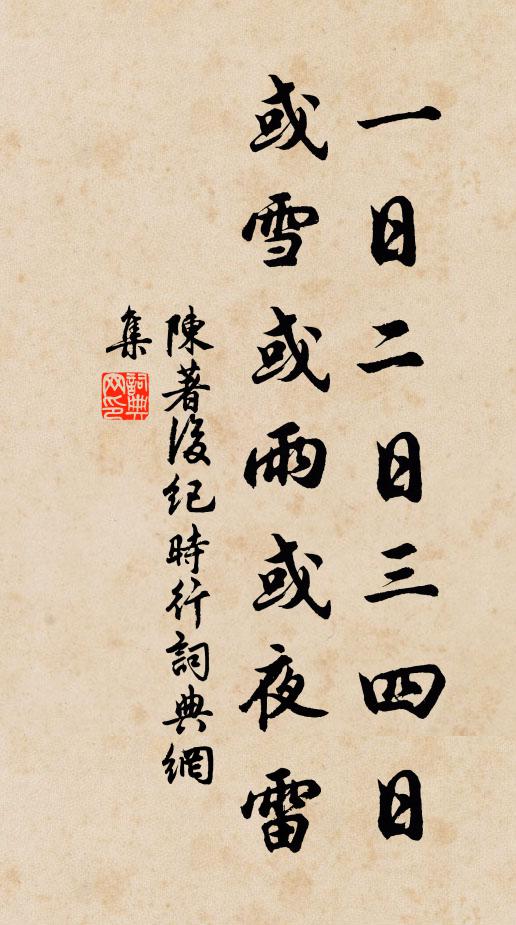 一日二日三四日
或雪或雨或夜雷
陳著後紀時行詞典網
集
詞典网印